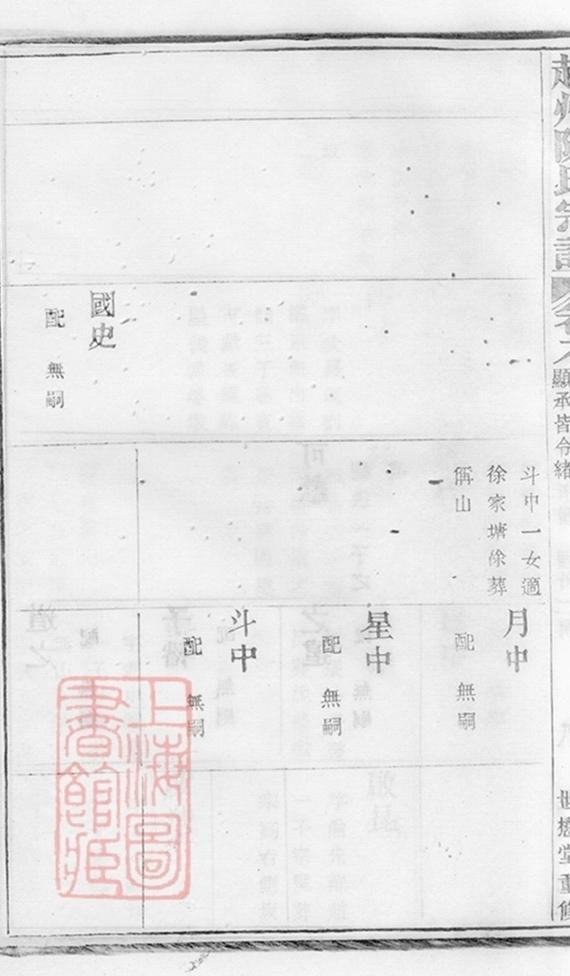 趙州陳氏宗譜
卷之 顯承皆令緒
世懋堂重修
國史
配 無嗣
斗中一女適
徐家塘徐葬
偁山
月中
配 無嗣
星中
配 無嗣
斗中
配 無嗣
上海圖
書館藏